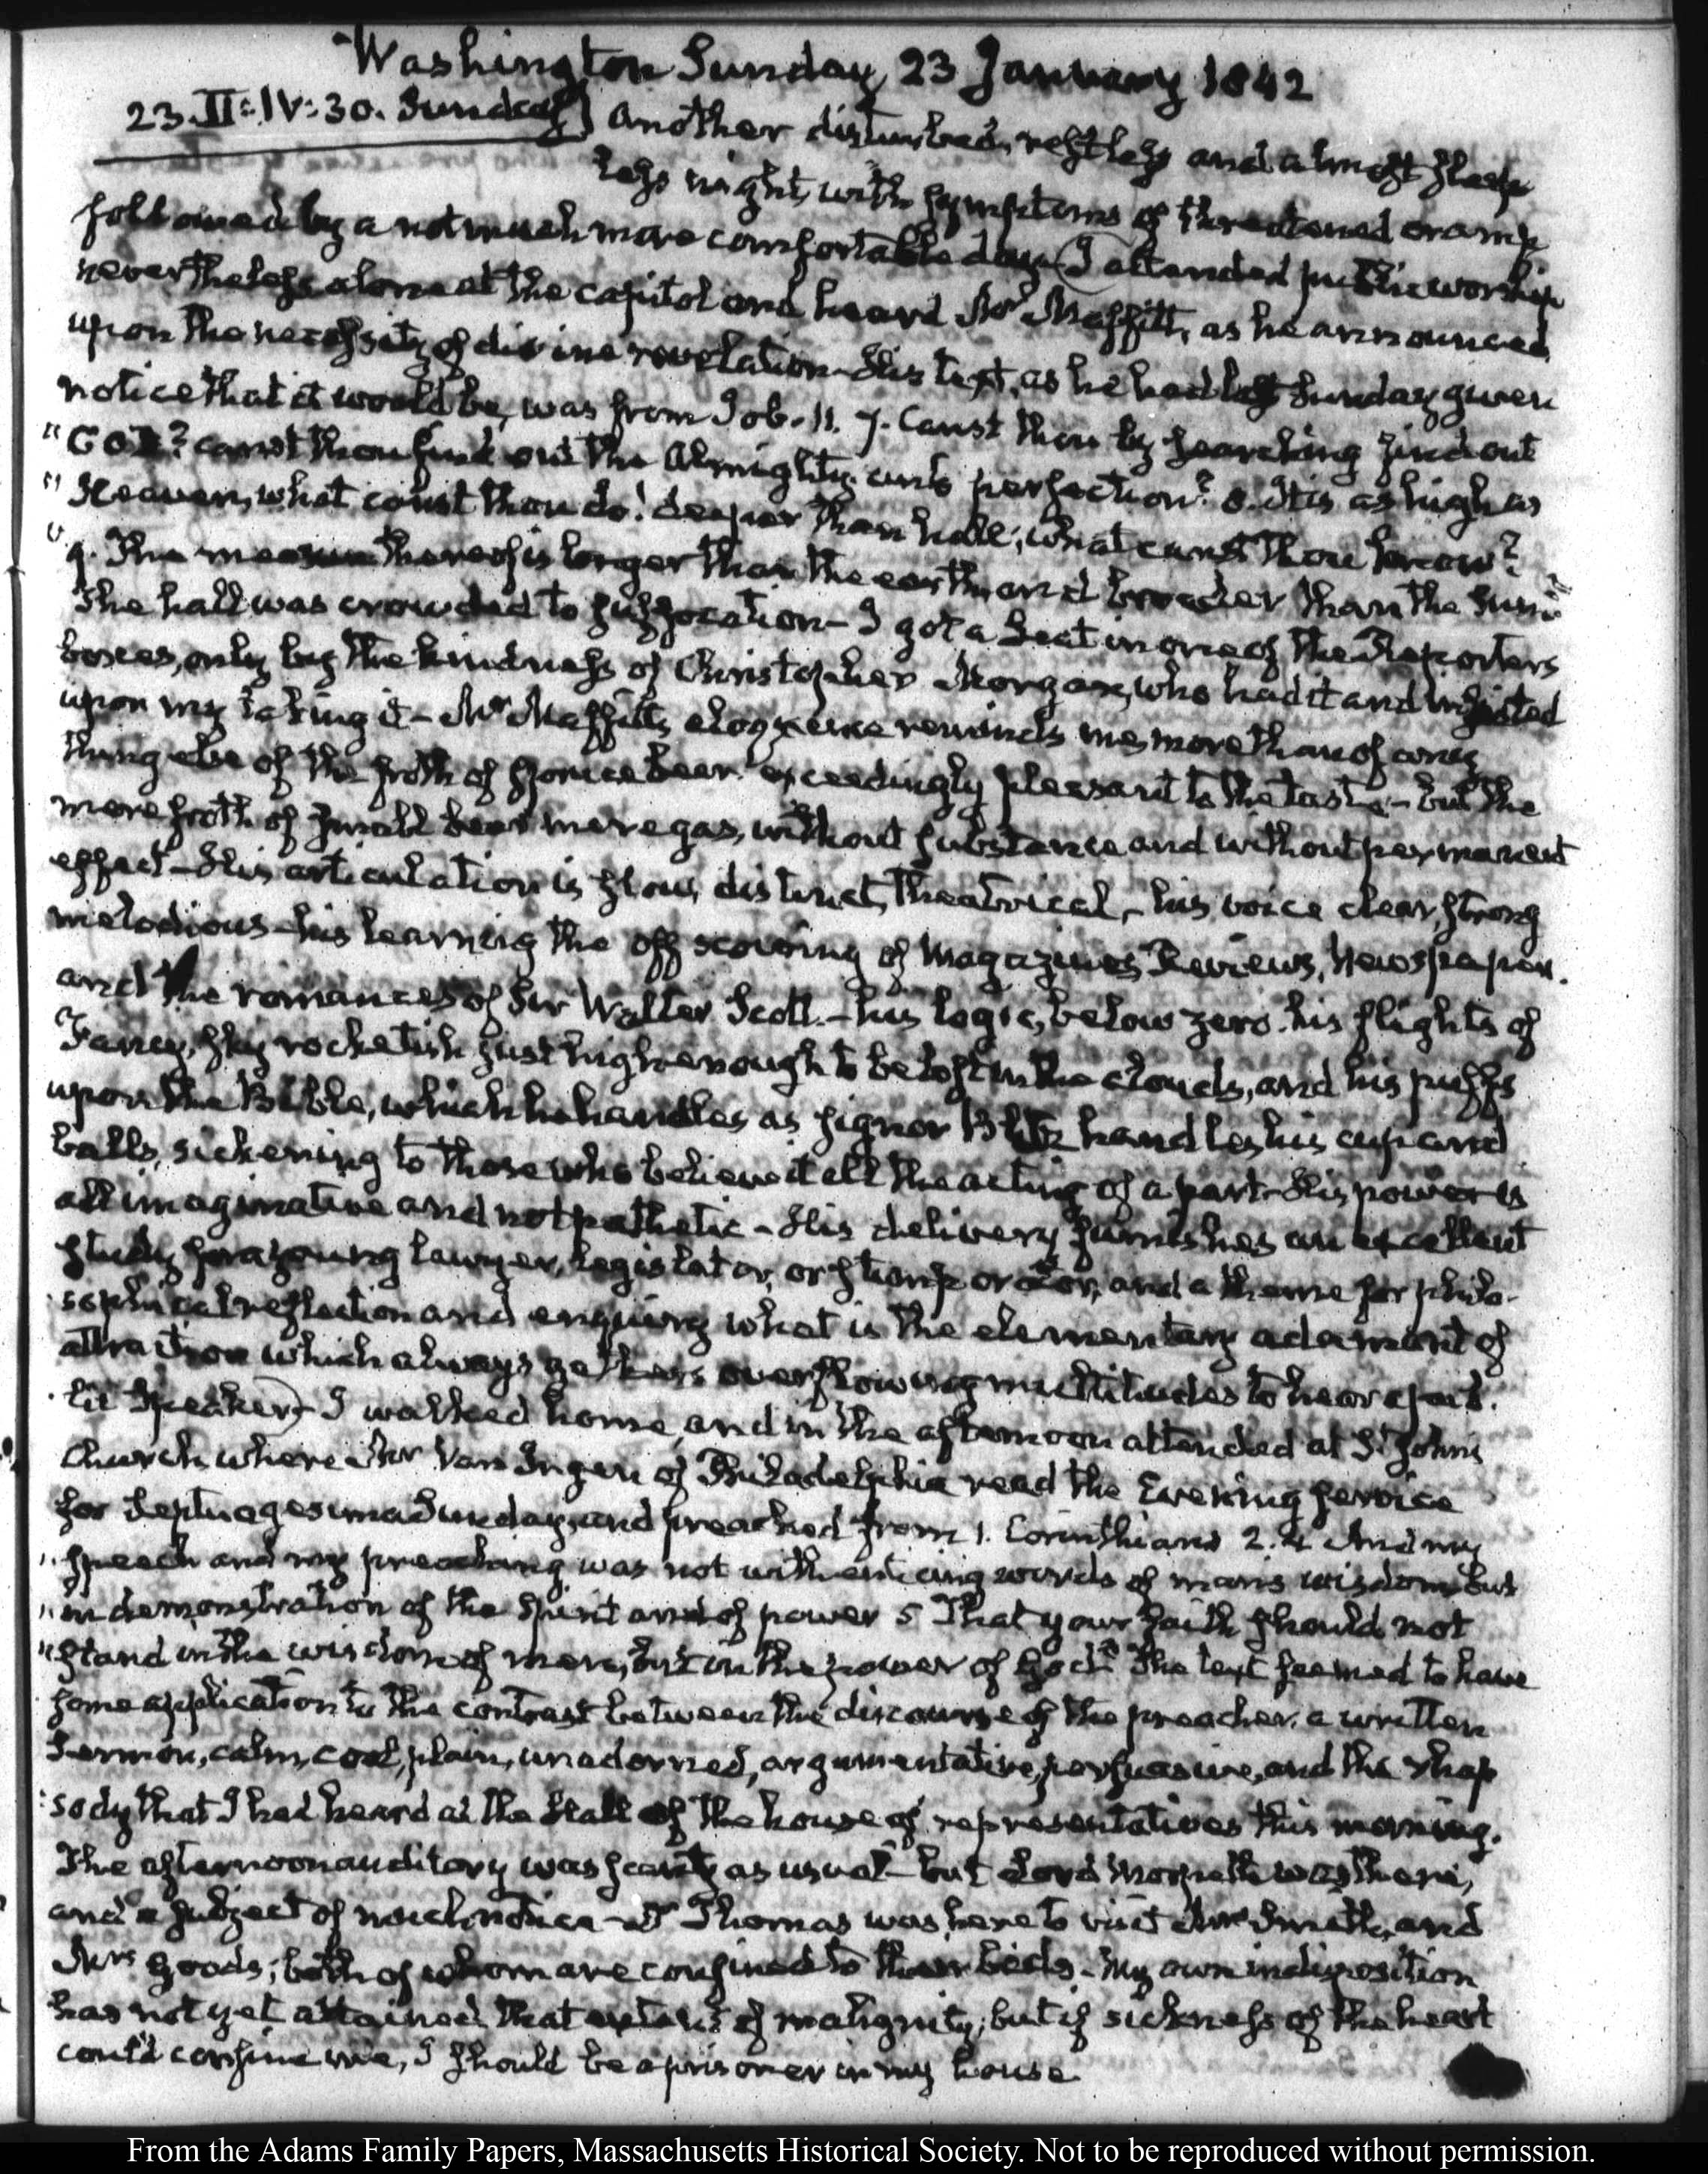 Washington Sunday 23 January 1842
23. II: IV:30. Sunday] Another disturbed, restless and almost sleep
less night, with symptoms of threatened cramp
followed by a not much more comfortable day. (I attended public worship
nevertheless alone at the Capitol and heard Mr Maffitt, as he announced
upon the necessity of divine revelation—His text, as he had last Sunday given
notice that it would be, was from Job. 11. 7. Canst thou by searching find out
"GOD? canst thou find out the Almighty unto perfection? 8. It is as high as
"Heaven, what canst thou do? deeper than hell; what canst thou know?
"9. The measure thereof is longer than the earth, and broader than the sea"
The hall was crowded to suffocation—I got a seat in one of the Reporters
boxes, only by the kindness of Christopher Morgan, who had it and insisted
upon my taking it—Mr Maffitt's eloquence reminds me more than of any
thing else of the froth of spruce beer. exceedingly pleasant to the taste—but the
mere froth of small beer mere gas, without substance and without permanent
effect—His articulation is slow, distinct, theatrical,—his voice clear, strong
melodious—his learning the off scouring of Magazines, Reviews, Newspapers.
and the romances of Sir Walter Scott.—his logic, below zero. his flights of
Fancy, sky rocketish just high enough to be lost in the clouds, and his puffs
upon the Bible, which he handles as signor Blitz handles his cup and
balls, sickening to those who believe it all the acting of a part—His power is
all imaginative and not pathetic—His delivery furnishes an excellent
study for a young lawyer, legislator, or stump orator, and a theme for philo-
sophical reflection and enquiry what is the elementary adamant of
attraction which always gathers overflowing multitudes to hear a pub.
lic Speaker)—I walked home, and in the afternoon attended at St. John's
Church, where Mr Van Ingen of Philadelphia read the Evening service
for Septuagesima Sunday, and preached from 1. Corinthians 2. 4 And my
"speech and my preaching was not with enticing words of man's wisdom but
"in demonstration of the spirit and of power 5 That your faith should not
"stand in the wisdom of men, but in the power of God" The text seemed to have
some application to the contrast between the discourse of the preacher, a written
Sermon, calm, cool, plain, unadorned, argumentative, persuasive, and the rhap
sody that I had heard at the Hall of the house of representatives this morning.
The afternoon auditory was scanty as usual—but Lord Morpeth was there,
and a subject of much notice—Dr Thomas was here to visit Mrs Smith, and
Mrs Goods; both of whom are confined to their beds—My own indisposition
has not yet attained that extent of malignity; but if sickness of the heart
could confine me, I should be a prisoner in my house
From the Adams Family Papers, Massachusetts Historical Society. Not to be reproduced without permission.